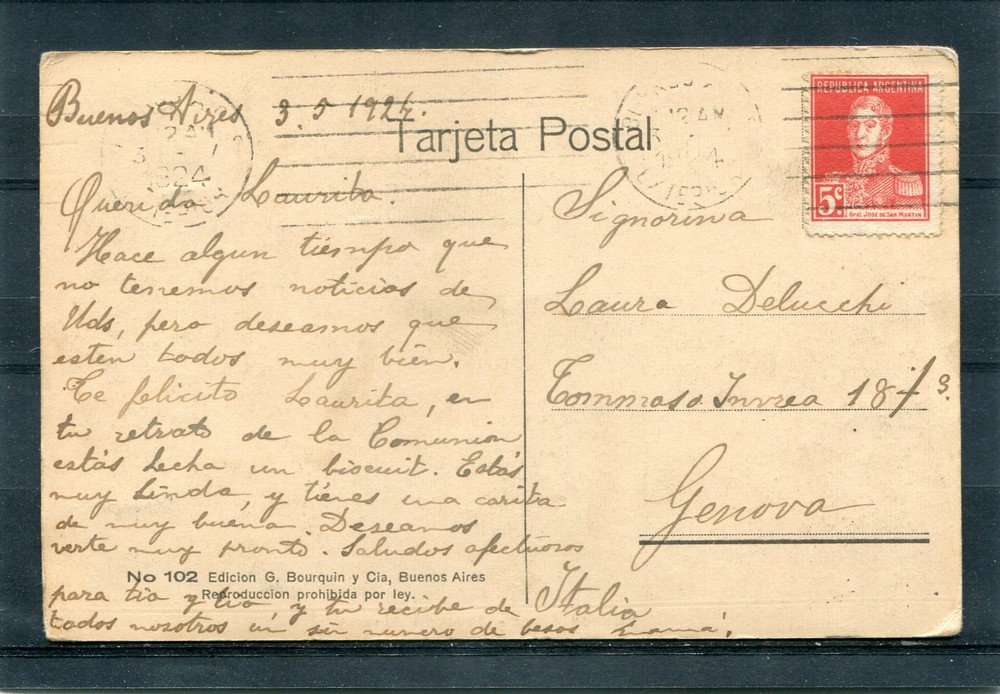 Buenos Aires 3.5 1924.
Tarjeta Postal
BUENOS AIRES
12 AM
3 V
1924
REPUBLICA ARGENTINA
5c.
Gral. JOSE DE SAN MARTIN
Querida Laurita.
Hace algun tiempo que
no tenemos noticias de
Uds, pero deseamos que
esten todos muy bien.
Te felicito Laurita, en
tu retrato de la Comunión
estás hecha un biscuit. Estás
muy linda, y tienes una carita
de muy buena. Deseamos
verte muy pronto. Saludos afectuosos
para tia y tio, y tu recibe de
todos nosotros un sin numero de besos
No 102 Edicion G. Bourquin y Cia, Buenos Aires
Reproduccion prohibida por ley.
Signorina
Laura Delucchi
Tommaso Invrea 18
Genova
Italia